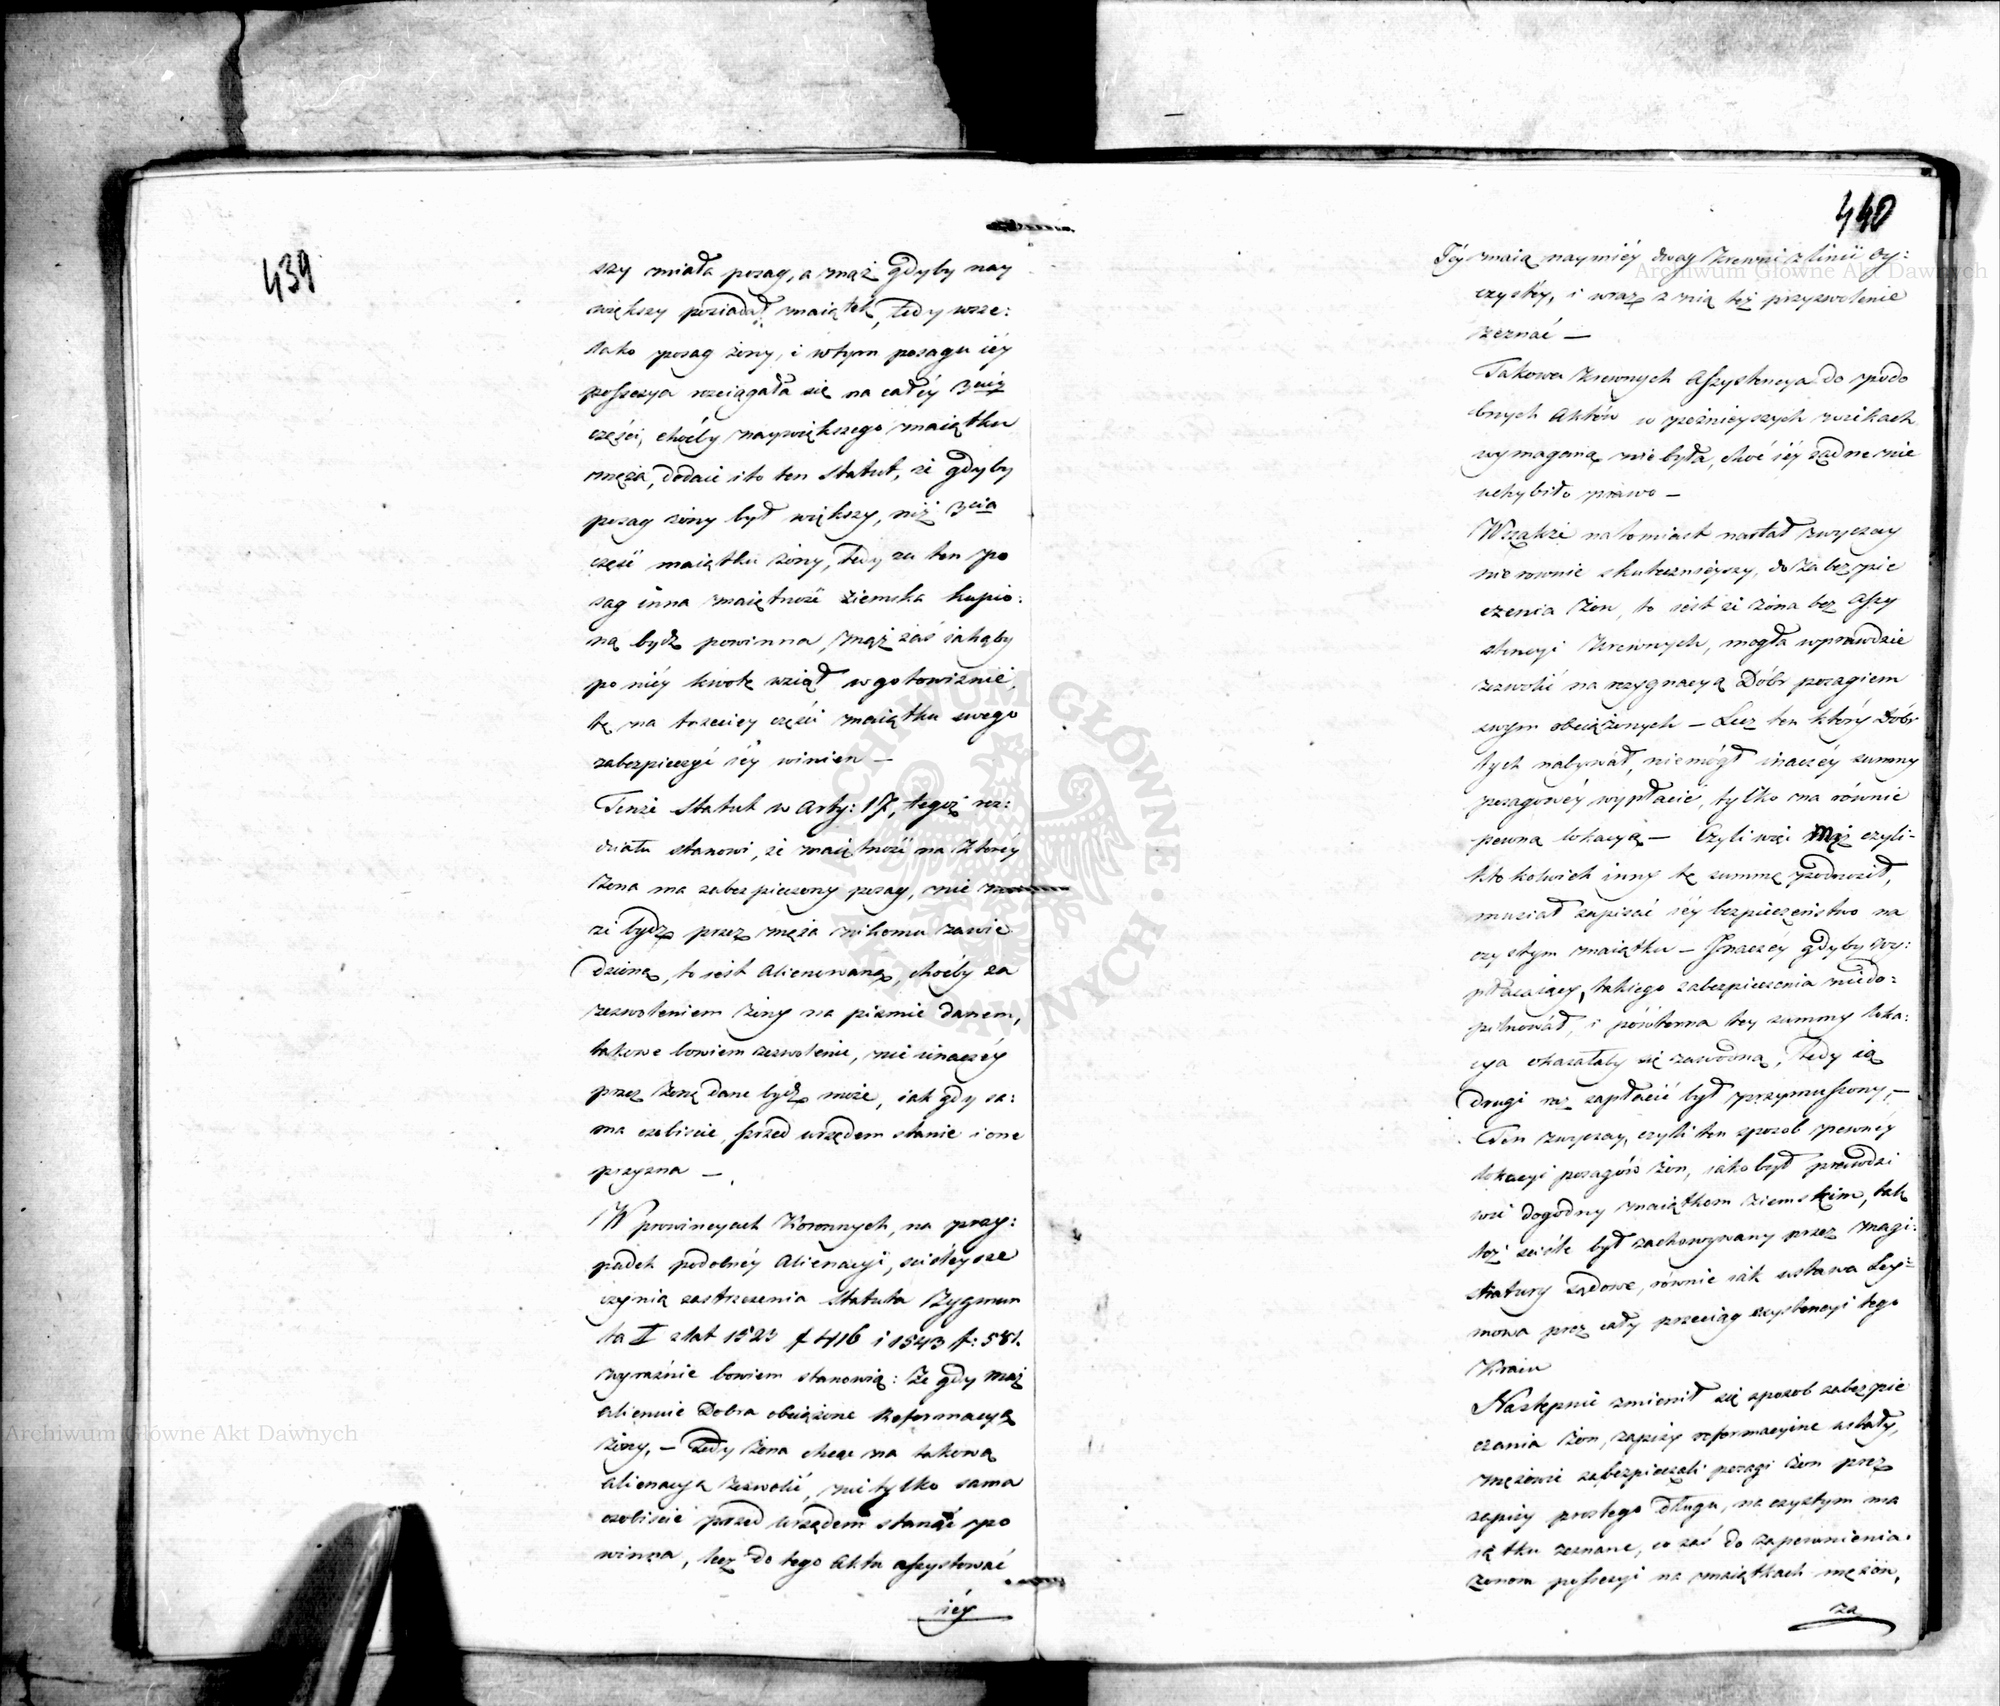 439
szy miała posag, a mąż gdyby nay
większy posiadał maiątek, tedy wsze:
lako posag żony, i wtym posagu iéy
possessya rozciągała się na całéy 3ciéy
części, choćby naywiększego maiątku
męża, dodaie i to ten Statut, że gdyby
posag żony był większy, niż 3cia
część maiątku żony, tedy za ten po
sag inna maiętność ziemska kupio:
ną bydz powinna, mąż zaś iakąby
po niéy kwotę wziął w gotowiznie,
tę na trzeciey części maiątku swego
zabezpieczyć iéy winien —
Tenże Statut w Arty: 17, tegoż roz:
działu stanowi, że maiętność na którey
żona ma zabezpieczony posag, nie mo
że bydz przez męża nikomu zawie
dzioną, to iest Alienowaną, choćby za
zezwoleniem żony na piśmie danem,
takowe bowiem zezwolenie, nie inaczéy
przez żonę dane bydz może, iak gdy sa:
ma osobiście, przed urzędem stanie i one
przyzna —
W prowincyach Koronnych, na przy:
padek podobnéy Alienacyi, ściśleysze
czynią zastrzeżenia Statuta Zygmun
ta I z lat 1523 f 416 i 1543 f: 581.
wyraźnie bowiem stanowią: Że gdy mąż
alienuie Dobra obciążone Reformacyą
żony, — Tedy żona chcąc na takową
alienacyą zezwolić, nie tylko sama
osobiście przed urzędem stanąć po
winna, lecz do tego Aktu assystować
iéy
440
Jéy maią naymiéy dway krewni z linii Oy:
czystéy, i wraz z nią też przyzwolenie
zeznać —
Takowa krewnych Assystencya do podo
bnych Aktów w poźnieyszych wiekach
wymaganą nie była, choć iéy żadne nie
uchybiło prawo —
Wszakże natomiast nastał zwyczay
nierównie skutecznieyszy, do zabezpie
czenia żon, to iest że żona bez Assy
stencyi krewnych, mogła wprawdzie
zezwolić na rezygnacyą Dóbr posagiem
swym obciążonych — Lecz ten który Dóbr
tych nabywał, niemógł inaczéy summy
posagowéy wypłacić, tylko na równie
pewną lokacyą — Czyli więc Mąż czyli-
ktokolwiek inny tę summę podnosił,
musiał zapisać iéy bezpieczeństwo na
czystym maiątku — Jnaczéy gdyby wy:
płacaiący, takiego zabezpieczenia niedo:
pilnował, i powtórna tey summy loka:
cya okazałaby się zawodną, Tedy ią
drugi raz zapłacić był przymuszony, —
Ten zwyczay, czyli ten sposob pewnéy
lokacyi posagów żon, iako był prawdzi
wie dogodny maiątkom ziemskim, tak
też ściśle był zachowywany przez Magi:
stratury sądowe, równie iak ustawa Sey:
mowa przez cały przeciąg exystencyi tego
Kraiu
Następnie zmienił się sposob zabezpie
czania żon, zapisy reformacyine ustały,
mężowie zabezpieczali posagi żon przez
zapisy prostego Długu, na czystym ma
iątku zeznane, co zaś do zapewnienia
żonom possessyi na maiątkach mężów,
za
Archiwum Główne Akt Dawnych
Archiwum Główne Akt Dawnych
ARCHIWUM GŁÓWNE AKT DAWNYCH